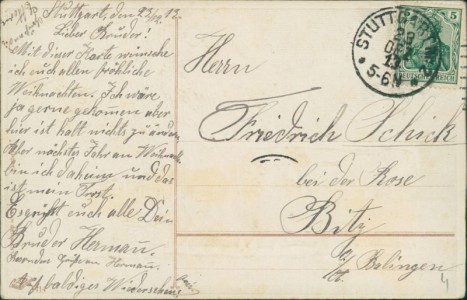 Stuttgart, den 23/12 13.
Lieber Bruder!
Mit diser Karte wünsche
ich euch allen fröhliche
Weihnachten. Ich wäre
ja gerne gekommen aber
hier ist halt nichts zu
Aber nächstes Jahr an
bin ich daheim und das
ist mein Trost.
Es grüßt euch alle Dein
Bruder Herman.
Auf baldiges Wiedersehen
Herrn
Friedrich Schick
bei der Rose
Bitz
Balingen
STUTTGART
5-6N
5
DEUTSCHES REICH